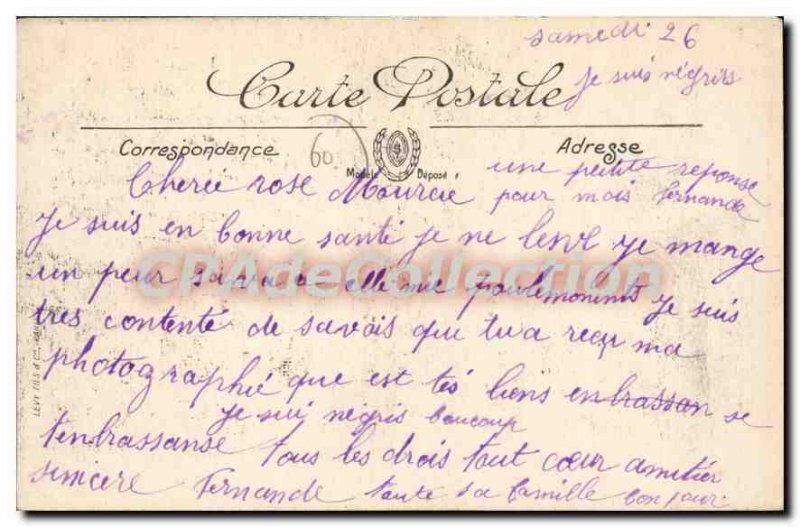 samedi 26
Je suis négris
Carte Postale
Correspondance
60
Modèle Déposé
Adresse
une petite reponse
pour mois Fernande
Cheree rose Mourcie
Je suis en bonne santé je ne leve je mange
un peur elle me je suis
CPAdeCollection
tres contenté de savais que tu a reçu ma
photographié que est tés biens enbrassan se
Je sui négris boucoup
t'enbrassanse tous les drois tout cœur amitier
sincere Fernande toute sa Camille bonjour
LEVY FILS & Cie